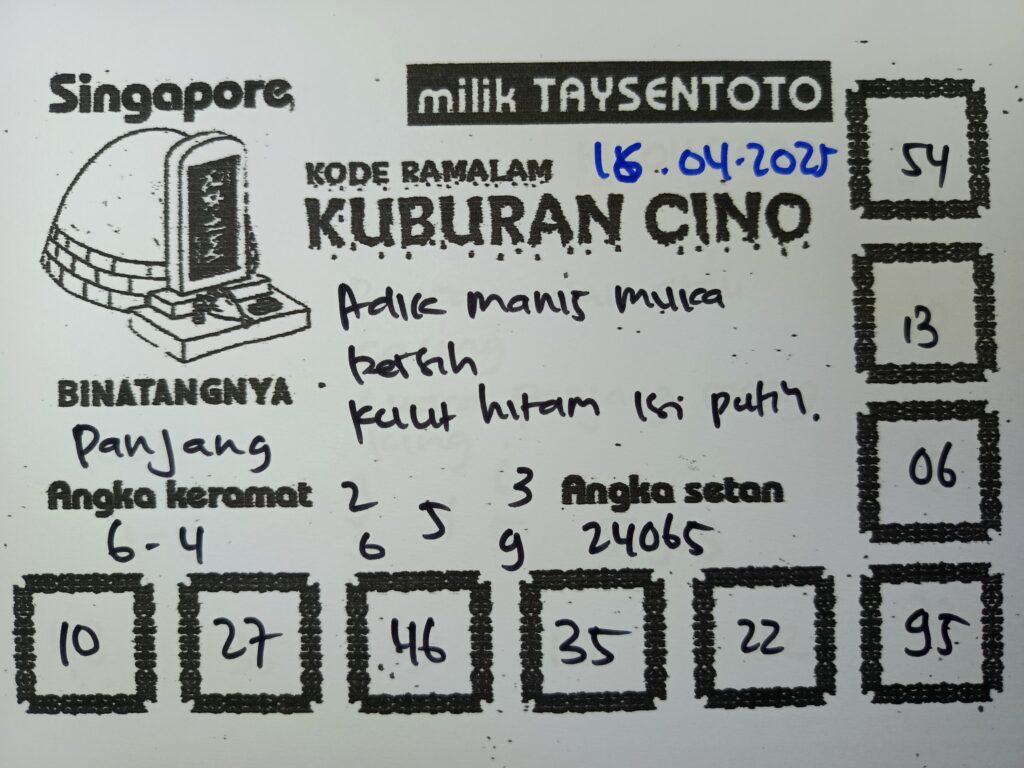 Singapore
milik TAYSENTOTO
KODE RAMALAM
16.04.2025
KUBURAN CINO
Adik manis muka
bersih
kulit hitam isi putih.
BINATANGNYA
Panjang
Angka keramat
6-4
2 3
5
6 9
Angka setan
24065
54
13
06
10 27 46 35 22 95